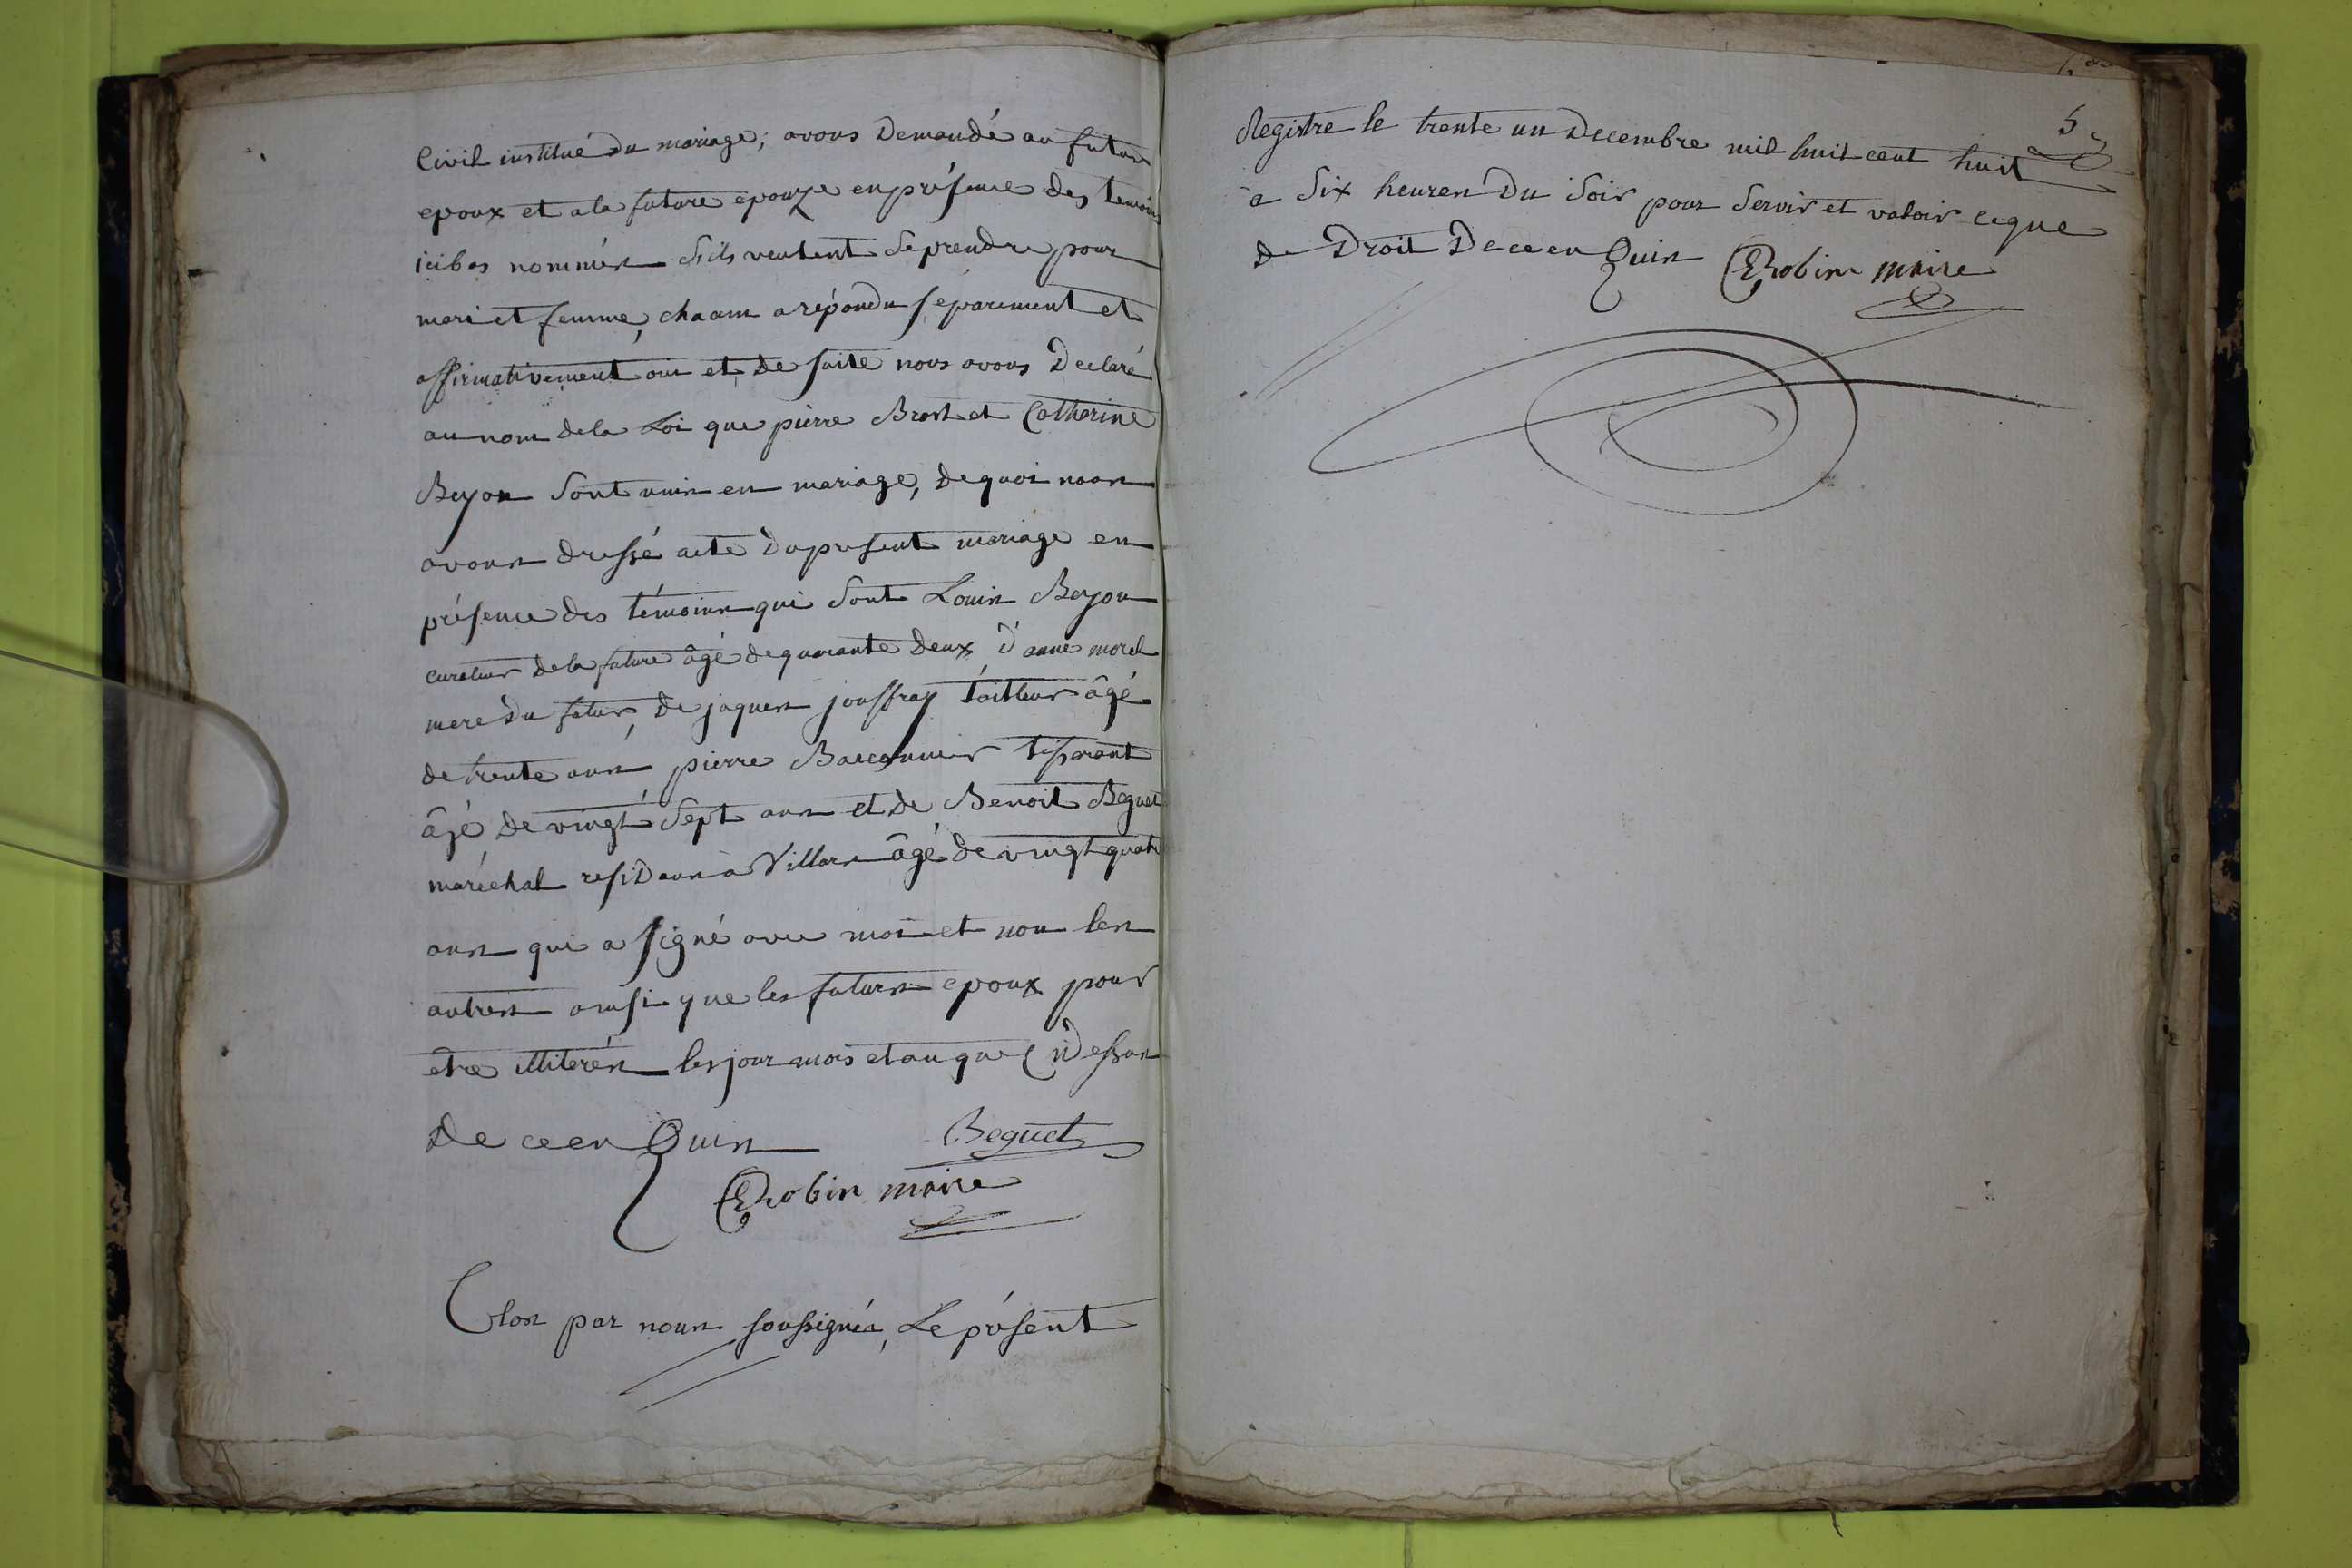 Civil institué du mariage; avons demandé au futur
epoux et a la future epouze en présence des temoins
ici bas nommés s'ils veulent se prendre pour
mari et femme, chacun a répondu separement et
affirmativement oui et de suite nous avons declaré
au nom de la Loi que pierre Brost et Catherine
Beyon sont unis en mariage, de quoi nous
avons dressé acte du present mariage en
présence des témoins qui sont Louis Beyon
curateur de la future âgé de quarante deux, d'anne morel
mere du futur, de jaques jouffray tailleur âgé
de trente ans, pierre Baccannier tiserant
âgé de vingt sept ans et de Benoit Beguet
maréchal residans à Villars âgé de vingt quatre
ans qui a signé avec moi et non les
autres ainsi que les futurs epoux pour
être illiterés les jour mois et an que ci dessus
De ce en Quis Beguet
Robin maire
Clos par nous soussignés, Le présent
5
Registre le trente un Decembre mil huit cent huit
a six heures du soir pour servir et valoir ce que
de Droit De ce en Quis Robin maire